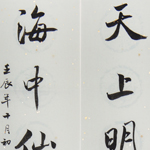 天上明
海中仙
壬辰年十月初